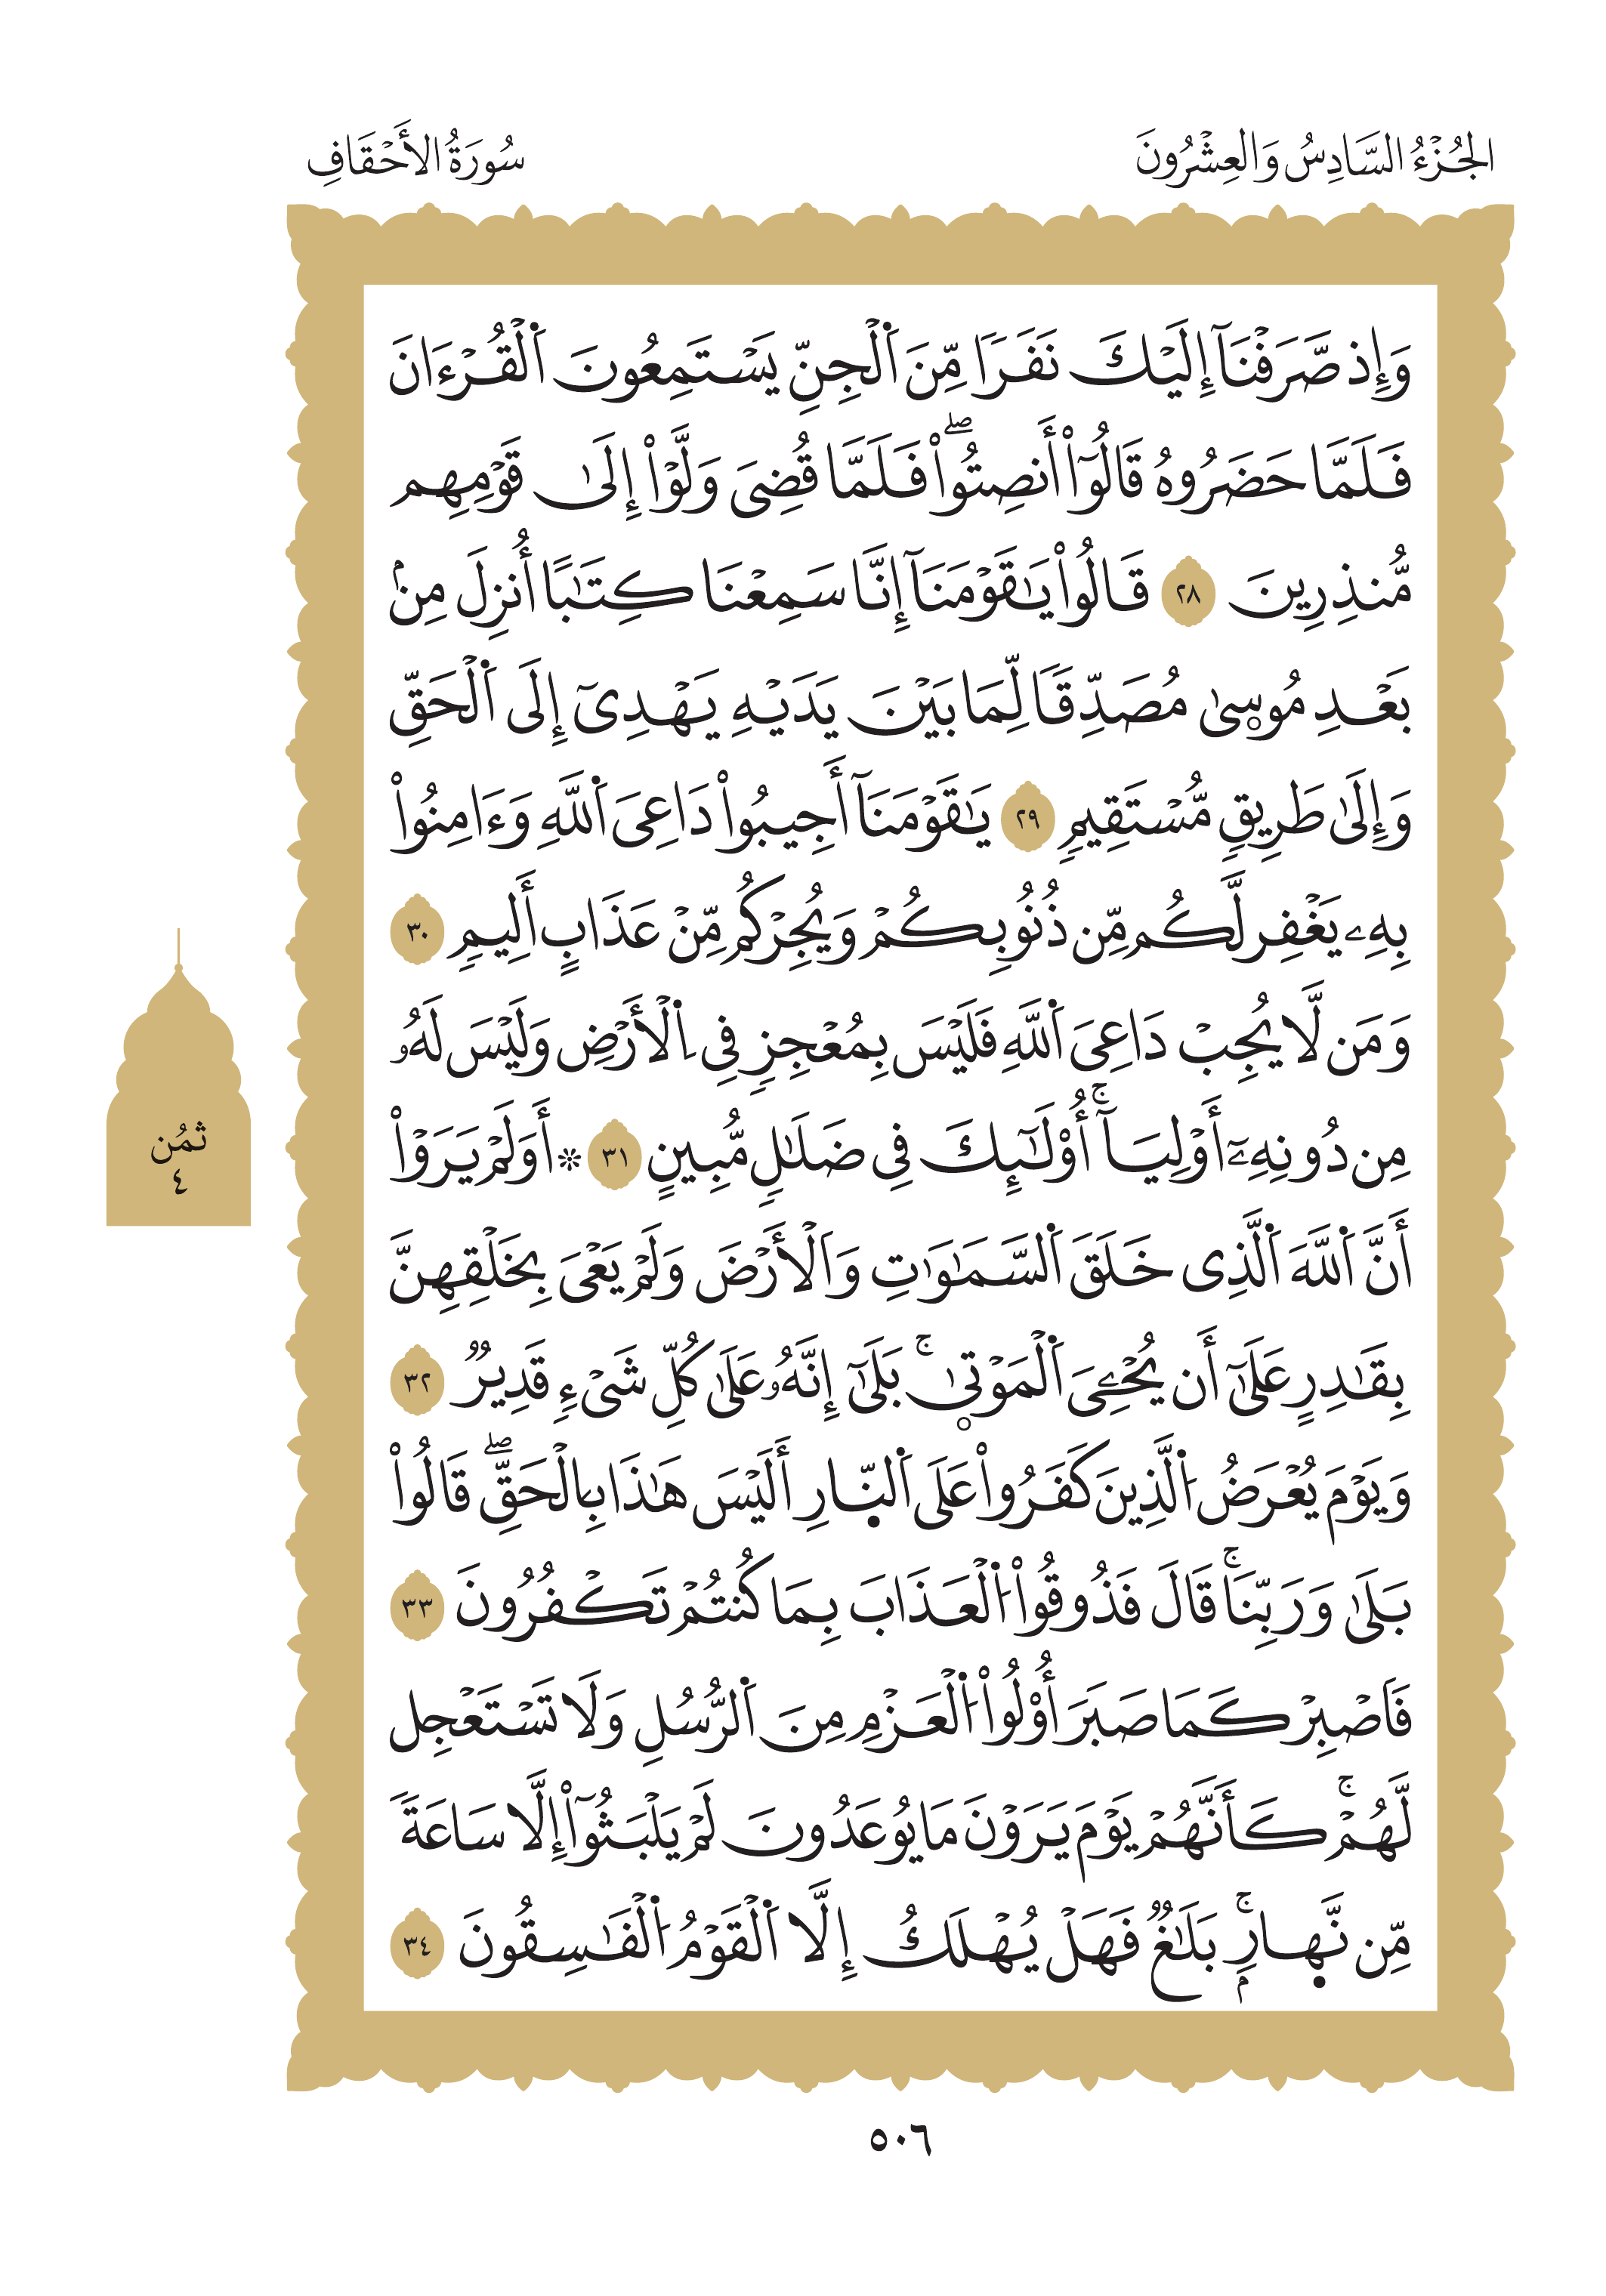 الجُزْءُ السَّادِسُ وَالعِشْرُونَ
سُورَةُ الأَحْقَافِ
وَإِذ صَّرَفْنَآ إِلَيْكَ نَفَرًا مِّنَ اَ۬لْجِنِّ يَسْتَمِعُونَ اَ۬لْقُرْءَانَ
فَلَمَّا حَضَرُوهُ قَالُوٓاْ أَنصِتُواْۖ فَلَمَّا قُضِيَ وَلَّوْاْ إِلَىٰ قَوْمِهِم
مُّنذِرِينَ ٢٨ قَالُواْ يَٰقَوْمَنَآ إِنَّا سَمِعْنَا كِتَٰبًا أُنزِلَ مِنۢ
بَعْدِ مُوس۪ىٰ مُصَدِّقًا لِّمَا بَيْنَ يَدَيْهِ يَهْدِىٓ إِلَى اَ۬لْحَقِّ
وَإِلَىٰ طَرِيقٍ مُّسْتَقِيمٍ ٢٩ يَٰقَوْمَنَآ أَجِيبُواْ دَاعِىَ اَ۬للَّهِ وَءَامِنُواْ
بِهِۦ يَغْفِر لَّكُم مِّن ذُنُوبِكُمْ وَيُجِرْكُم مِّنْ عَذَابٍ أَلِيمٍ ٣٠
وَمَن لَّا يُجِبْ دَاعِىَ اَ۬للَّهِ فَلَيْسَ بِمُعْجِزٍ فِى اِ۬لْأَرْضِ وَلَيْسَ لَهُۥ
مِن دُونِهِۦٓ أَوْلِيَآءُۚ أُوْلَٰٓئِكَ فِى ضَلَٰلٍ مُّبِينٍ ٣١ ۞ أَوَلَمْ يَرَوْاْ
أَنَّ اَ۬للَّهَ اَ۬لَّذِى خَلَقَ اَ۬لسَّمَٰوَٰتِ وَالْأَرْضَ وَلَمْ يَعْىَ بِخَلْقِهِنَّ
بِقَٰدِرٍ عَلَىٰٓ أَن يُحْـِۧىَ اَ۬لْمَوْت۪ىٰۚ بَلَىٰٓ إِنَّهُۥ عَلَىٰ كُلِّ شَىْءٍ قَدِيرٌ ٣٢
وَيَوْمَ يُعْرَضُ اُ۬لَّذِينَ كَفَرُواْ عَلَى اَ۬لنّ۪ارِ أَلَيْسَ هَٰذَا بِالْحَقِّۖ قَالُواْ
بَلَىٰ وَرَبِّنَاۚ قَالَ فَذُوقُواْ اُ۬لْعَذَابَ بِمَا كُنتُمْ تَكْفُرُونَ ٣٣
فَاصْبِرْ كَمَا صَبَرَ أُوْلُواْ اُ۬لْعَزْمِ مِنَ اَ۬لرُّسُلِ وَلَا تَسْتَعْجِل
لَّهُمْۚ كَأَنَّهُمْ يَوْمَ يَرَوْنَ مَا يُوعَدُونَ لَمْ يَلْبَثُوٓاْ إِلَّا سَاعَةً
مِّن نَّه۪ارٍۚ بَلَٰغٌ فَهَلْ يُهْلَكُ إِلَّا اَ۬لْقَوْمُ اُ۬لْفَٰسِقُونَ ٣٤
ثمُن
٤
٥٠٦